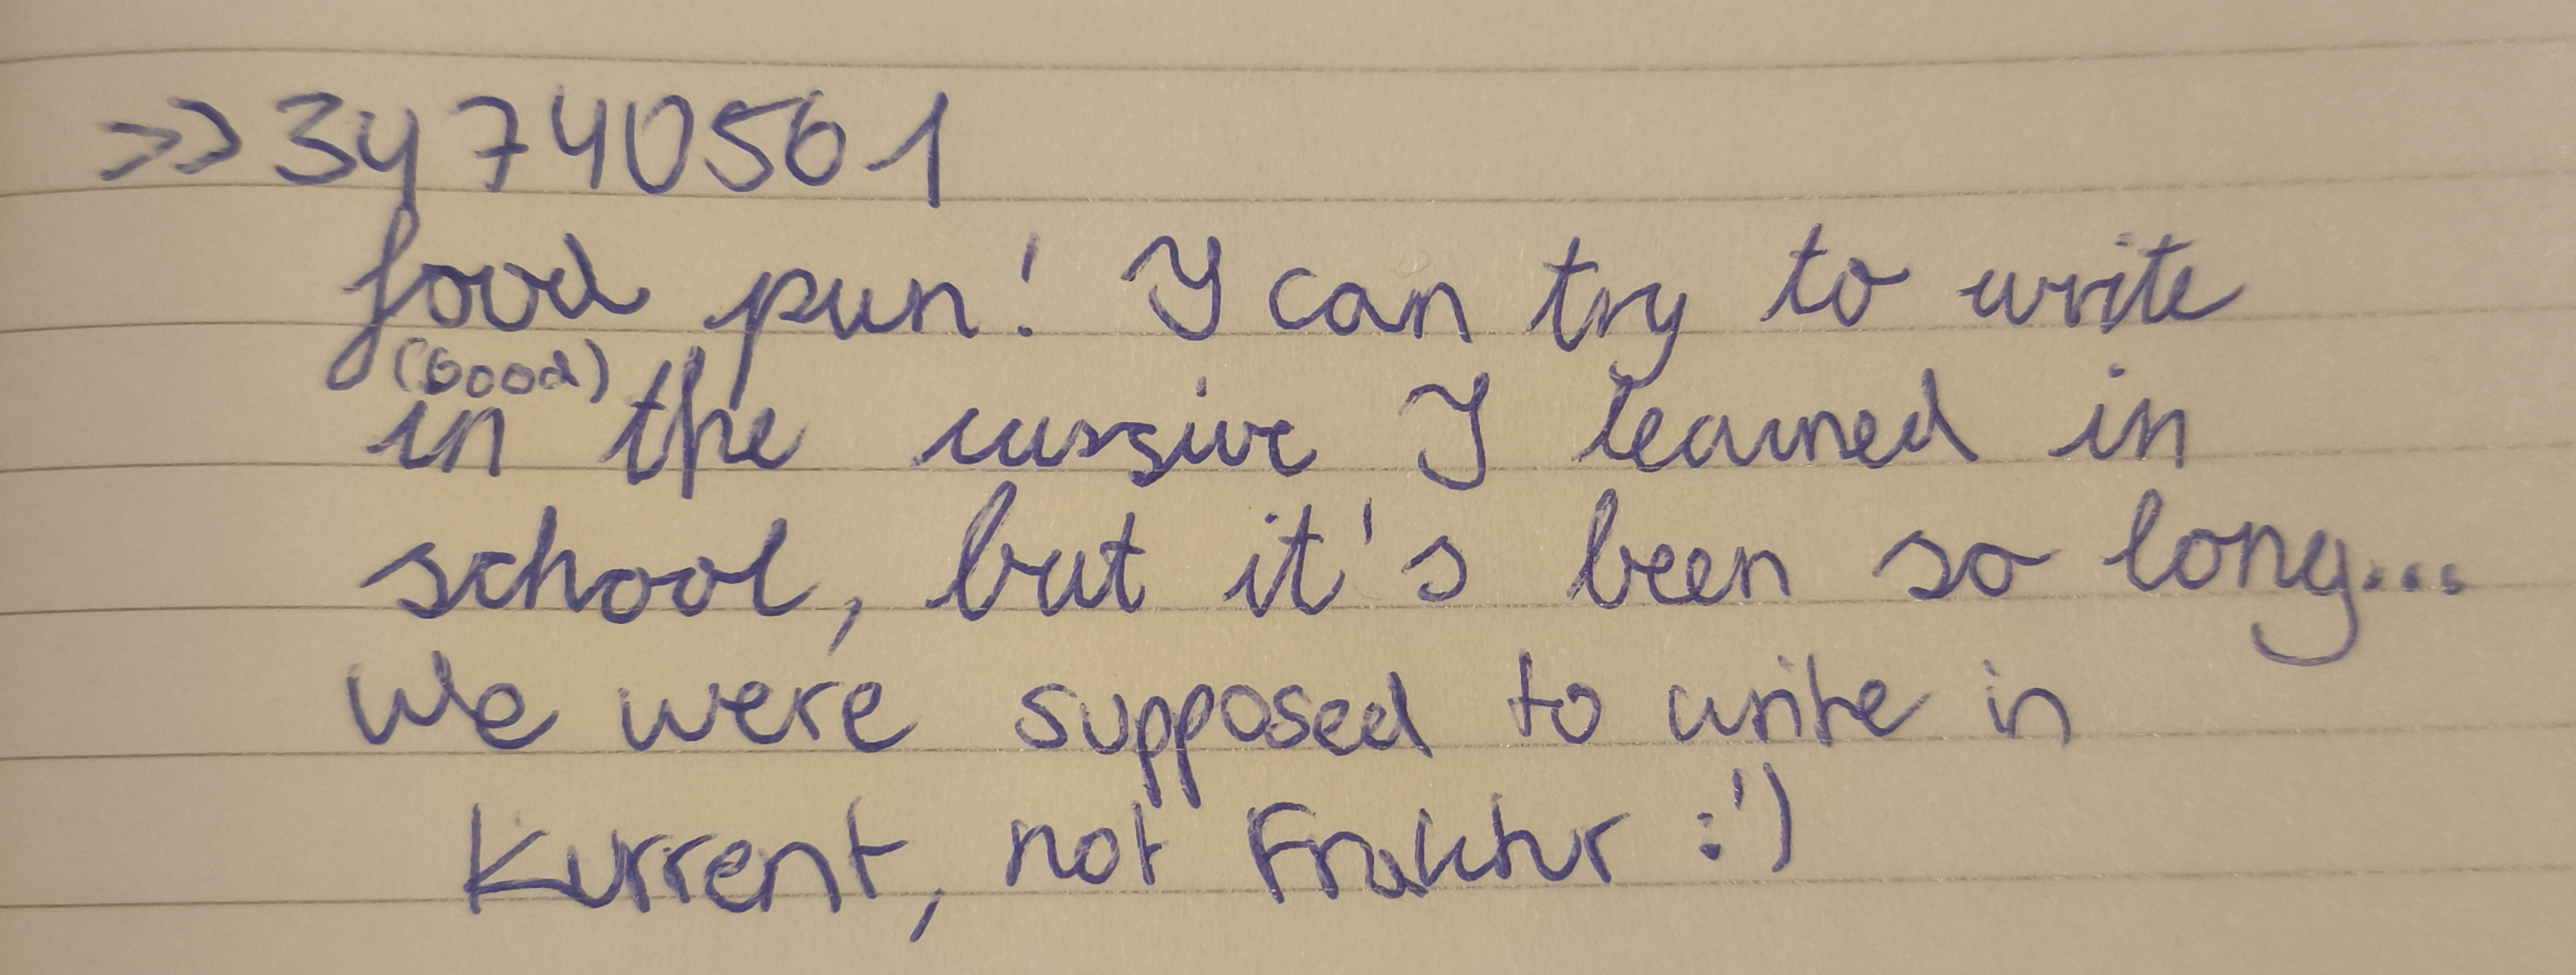 >>34740561
food pun! I can try to write
(Good)
in the cursive I learned in
school, but it's been so long...
We were supposed to write in
Kurrent, not Fraktur :')